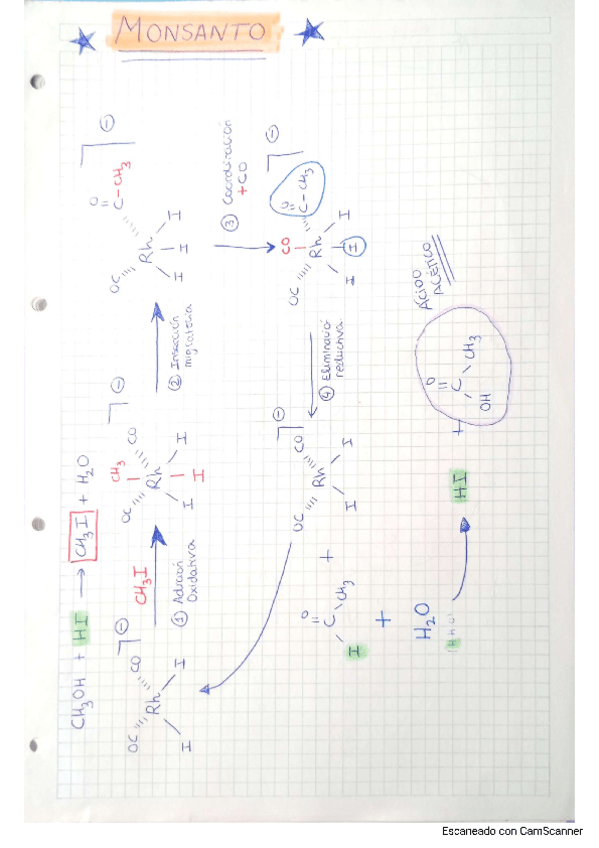 MONSANTO
CH3OH + HI → CH3I + H2O
OC CO
Rh
I I
⊖
CH3I
① Adición
Oxidativa
CH3
OC CO
Rh
I I
I
⊖
② Inserción
migratoria
O
C-CH3
OC
Rh
I I I
⊖
③ Coordinación
+CO
O
C-CH3
CO
OC
Rh
I I I
⊖
④ Eliminació
reductiva
OC CO
Rh
I I
⊖
+
O
C
I CH3
+
H2O
HI
+
O
C
OH CH3
ÁCIDO
ACÉTICO
Escaneado con CamScanner